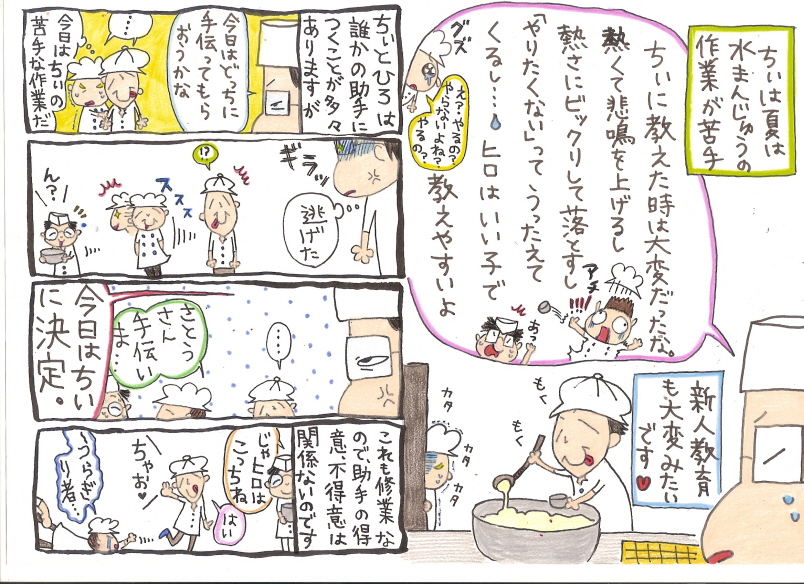 ちぃは夏は
水まんじゅうの
作業が苦手
ちぃに教えた時は大変だったな。
熱くて悲鳴を上げるし
熱さにビックリして落とすし
「やりたくない」ってうったえて
くるし…
ヒロはいい子で
教えやすいよ
グズ
え?やるの?
やらないよね?
やるの?
アチ
!!!!
あっ
新人教育
も大変みたい
です♥
もく
もく
カタ
カタ
カタ
カタ
ちぃとひろは
誰かの助手に
つくことが多々
ありますが
今日はどっちに
手伝ってもら
おうかな
…
今日はちぃの
苦手な作業だ
ギラッ
逃げた
!?
ススス
ん?
…
さとう
さん
手伝い
ま…
今日はちぃ
に決定。
これも修業な
ので助手の得
意、不得意は
関係ないのです
じゃヒロは
こっちね
はい
ちゃお♥
うらぎ
り者…